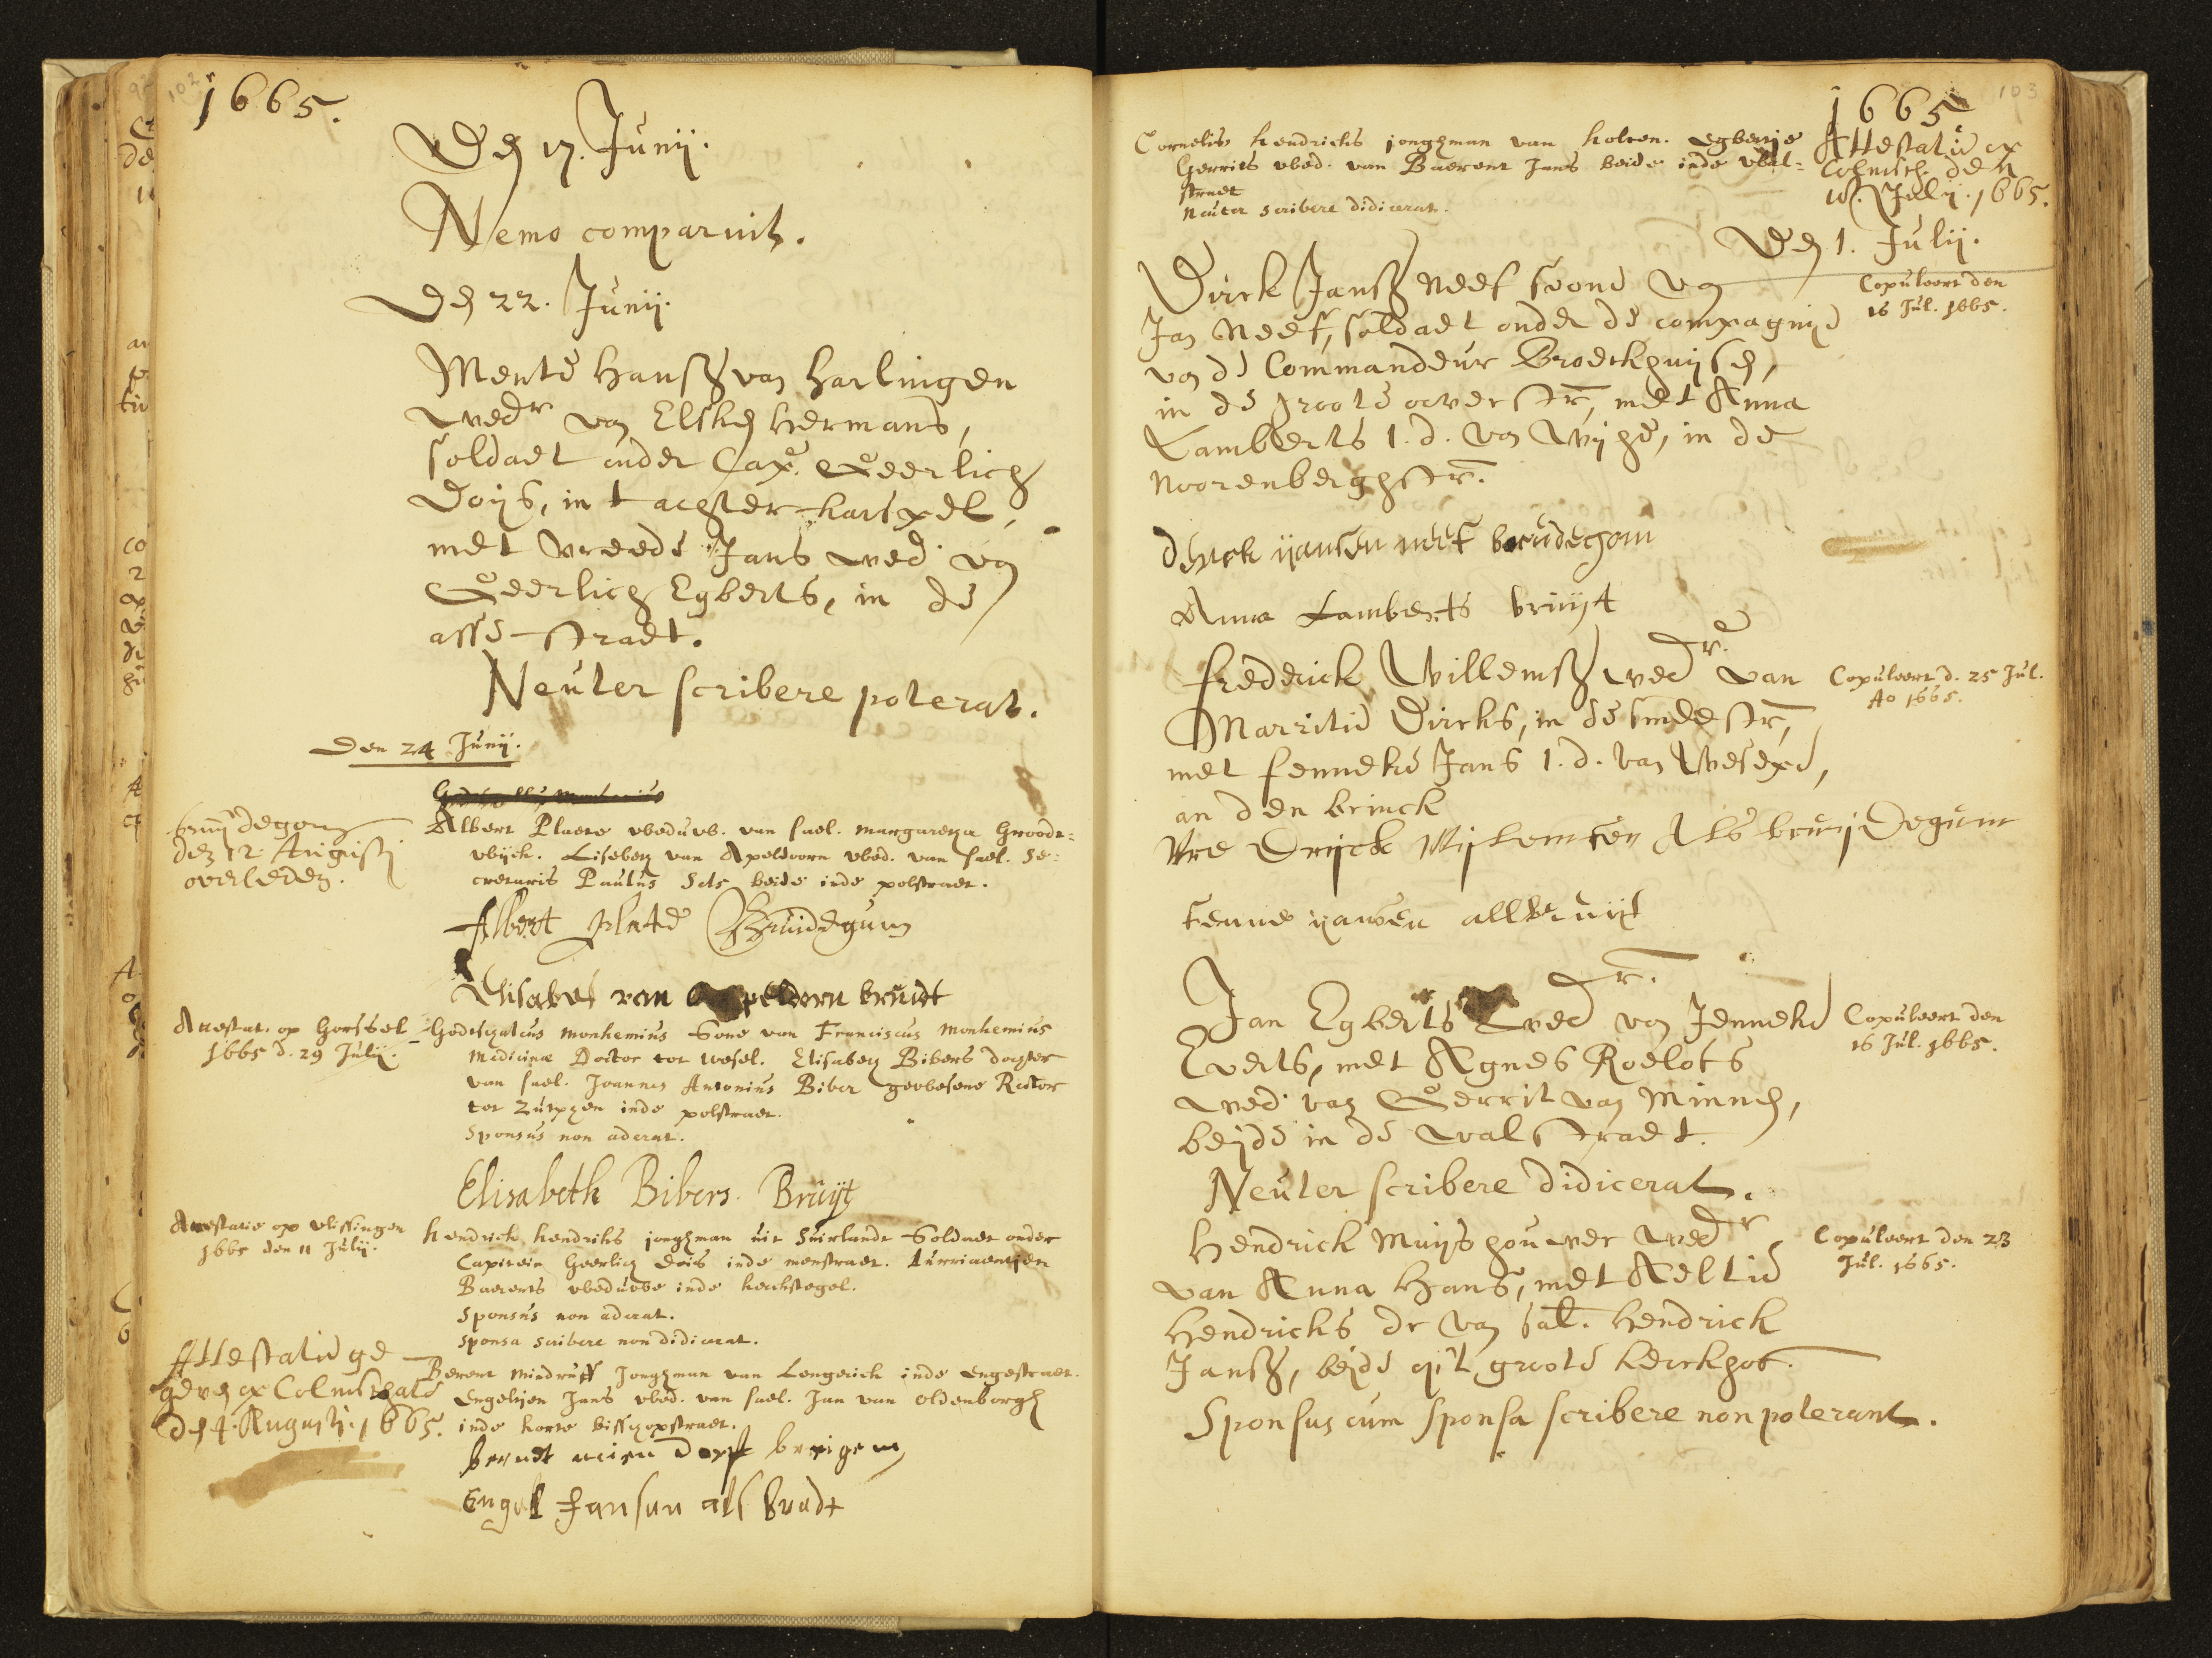 102
1665.
Den 17. Junij.
Nemo comparuit.
Den 22. Junij.
Mente Hanss van Harlingen
wedr van Elsken Hermans,
soldaet onder Cap. Geerlich
Doijs, in t achter karspel,
met Vreede Jans wed. van
Geerlich Egberts, in de
asse straet.
Neuter scribere poterat.
Den 24 Junij.
bruijdegom
den 12 Augusti
overleden.
Albert Plaete weduwb. van sael. margareta Groodt=
wijck. Lisebeth van Apeldoorn wed. van sael. Se=
cretaris Paulus Sels beide inde polstraet.
Albert Plate Bruidegum
Elisabet van Appeldorn bruidt
Attestat. op Gorssel
1665 d. 29 Julij.
Godtschalcus Monhemius Sone van Franciscus Monhemius
Medicinæ Doctor tot Wesel. Elisabeth Bibers dochter
van sael. Joannes Antonius Biber gewesene Rector
tot Zutphen inde polstraet.
Sponsus non aderat.
Elisabeth Bibers. Bruijt
Attestatie op Vlissingen
1665 den 11 Julij.
Hendrick Hendriks jonghman uit Suirlandt Soldaet onder
Capitein Geerlich Dois inde menstraet. Lurriaentjen
Baerents weduwe inde kerkstegel.
Sponsus non aderat.
Sponsa scribere non didicerat.
Attestatie ge
geven op Colmschate
den 4. Augusti. 1665.
Berent Mindrupp Jonghman van Lengerick inde Engestraet.
Engeltjen Jans wed. van sael. Jan van Oldenborgh
inde korte bisschopstraet.
berndt Dorp breigem
Engel Jansen als brudt
103
1665
Cornelis Hendricks jonghman van Holten. Egbertje
Gerrits wed. van Baerent Jans beide inde wal=
straet
Neuter scribere didicerat.
Attestatie op
Colmsch. den
16. Julij. 1665.
Den 1. Julij.
Dirck Janss Neef soone van
Jan Neef, soldaet onder de compagnie
van de Commandeur Broeckhuijsen,
in de groote overstr, met Anna
Lamberts J. d. van Wijhe, in de
Noorenberghstr.
Copuleert den
16 Jul. 1665.
derick yansen neef brudegom
Anna Lamberts bruijt
Frederick Willemss wedr. van
Marritie Dircks, in de smedestr,
met Fenneke Jans J. d. van Wesepe,
an den brinck
Copuleert d. 25 Jul.
Ao 1665.
Vre Drijck Wijllemsen Als bruij Degum
Fenne yansen all bruijt
Jan Egberts wedr. van Jenneke
Everts, met Agnes Roelofs
wed. van Gerrit van Minnen,
beijde in de walstraet.
Copuleert den
16 Jul. 1665.
Neuter scribere didicerat.
Hendrick Muijshouwer wedr
van Anna Hans, met Aeltie
Hendricks dr van sal. Hendrick
Janss, beijde op't groote kerckhof.
Copuleert den 23
Jul. 1665.
Sponsus cum sponsa scribere non poterant.